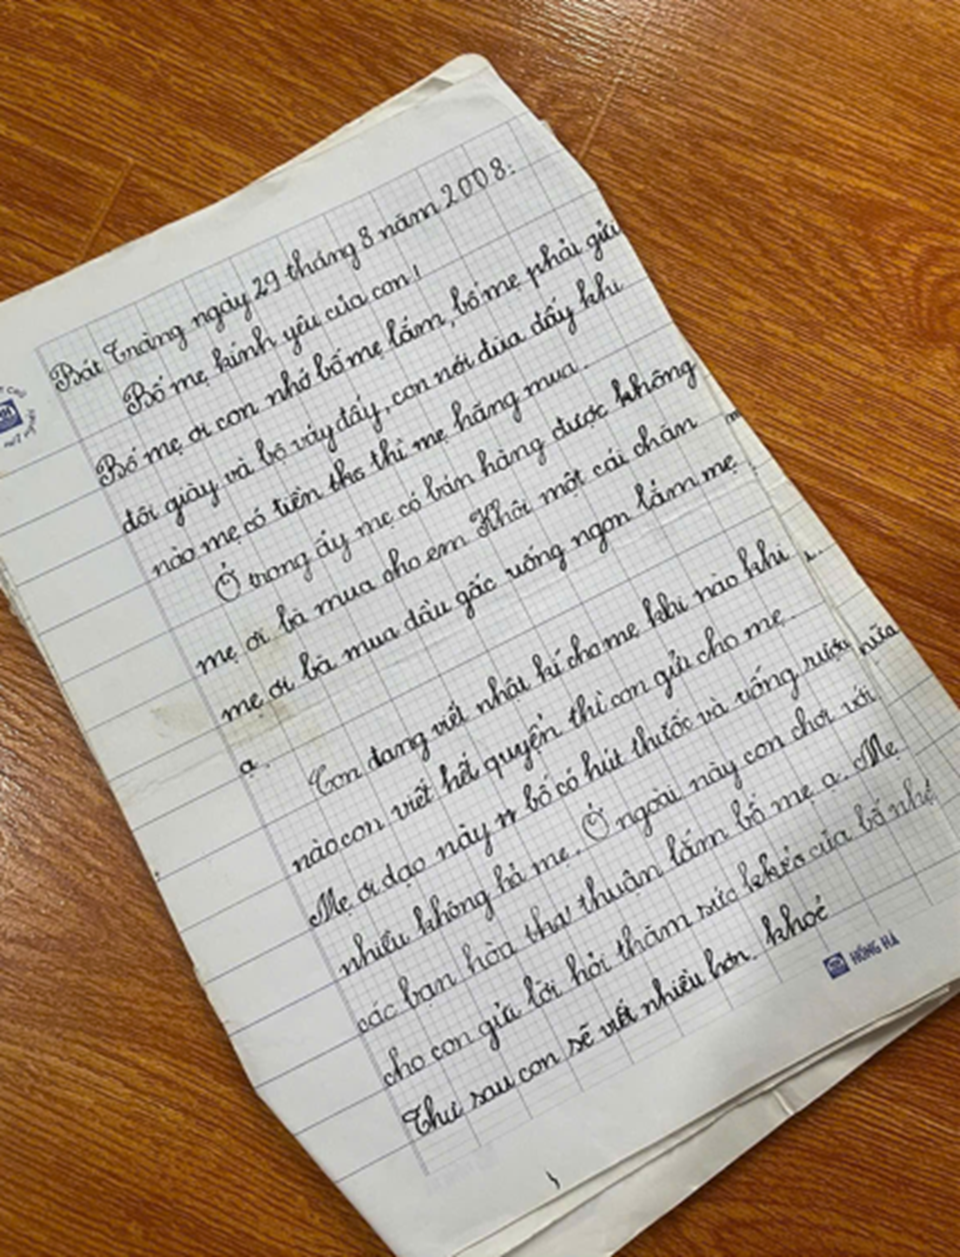 Bát Tràng ngày 29 tháng 8 năm 2008.
Bố mẹ kính yêu của con!
Bố mẹ ơi con nhớ bố mẹ lắm, bố mẹ phải gửi
đôi giày và bộ váy đấy, con nói đùa đấy khi
nào mẹ có tiền thì mẹ hẵng mua.
Ở trong ấy mẹ có bán hàng được không
mẹ ơi bà mua cho em Khôi một cái chăn
mẹ ơi bà mua dầu gấc uống ngon lắm mẹ
ạ.
Con đang viết nhật kí cho mẹ khi nào khi
nào con viết hết quyển thì con gửi cho mẹ.
Mẹ ơi dạo này bố có hút thuốc và uống rượu nữa
nhiều không hả mẹ. Ở ngoài này con chơi với
các bạn hòa thuận lắm bố mẹ ạ. Mẹ
cho con gửi lời hỏi thăm sức khỏe của bố nhé
khoẻ
Thư sau con sẽ viết nhiều hơn.
HỒNG HÀ